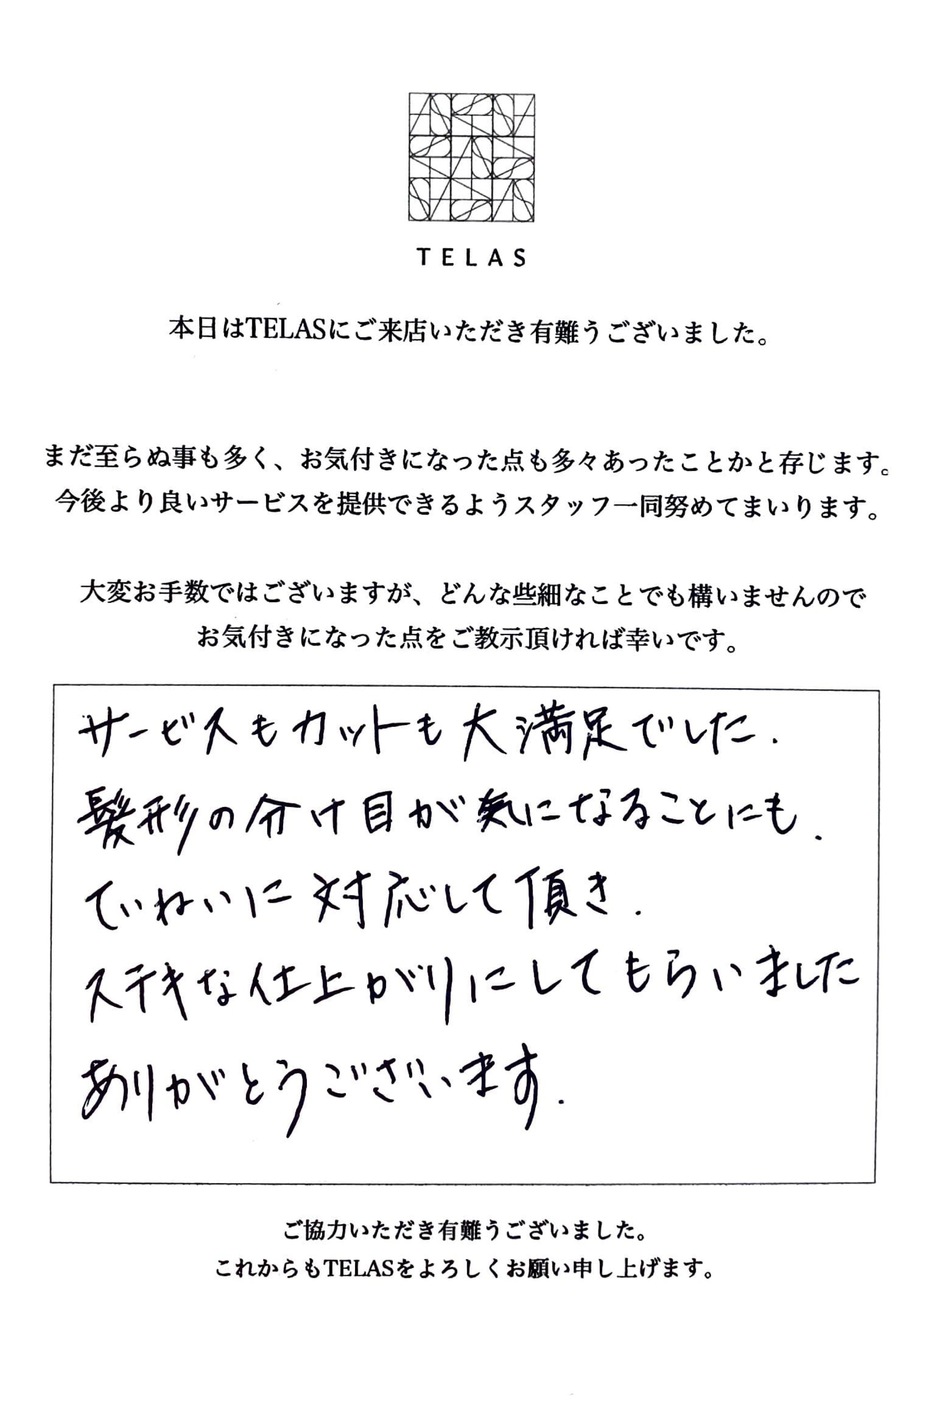 TELAS
本日はTELASにご来店いただき有難うございました。
まだ至らぬ事も多く、お気付きになった点も多々あったことかと存じます。
今後より良いサービスを提供できるようスタッフ一同努めてまいります。
大変お手数ではございますが、どんな些細なことでも構いませんので
お気付きになった点をご教示頂ければ幸いです。
サービスもカットも大満足でした.
髪形の分け目が気になることにも.
ていねいに対応して頂き.
ステキな仕上がりにしてもらいました
ありがとうございます.
ご協力いただき有難うございました。
これからもTELASをよろしくお願い申し上げます。